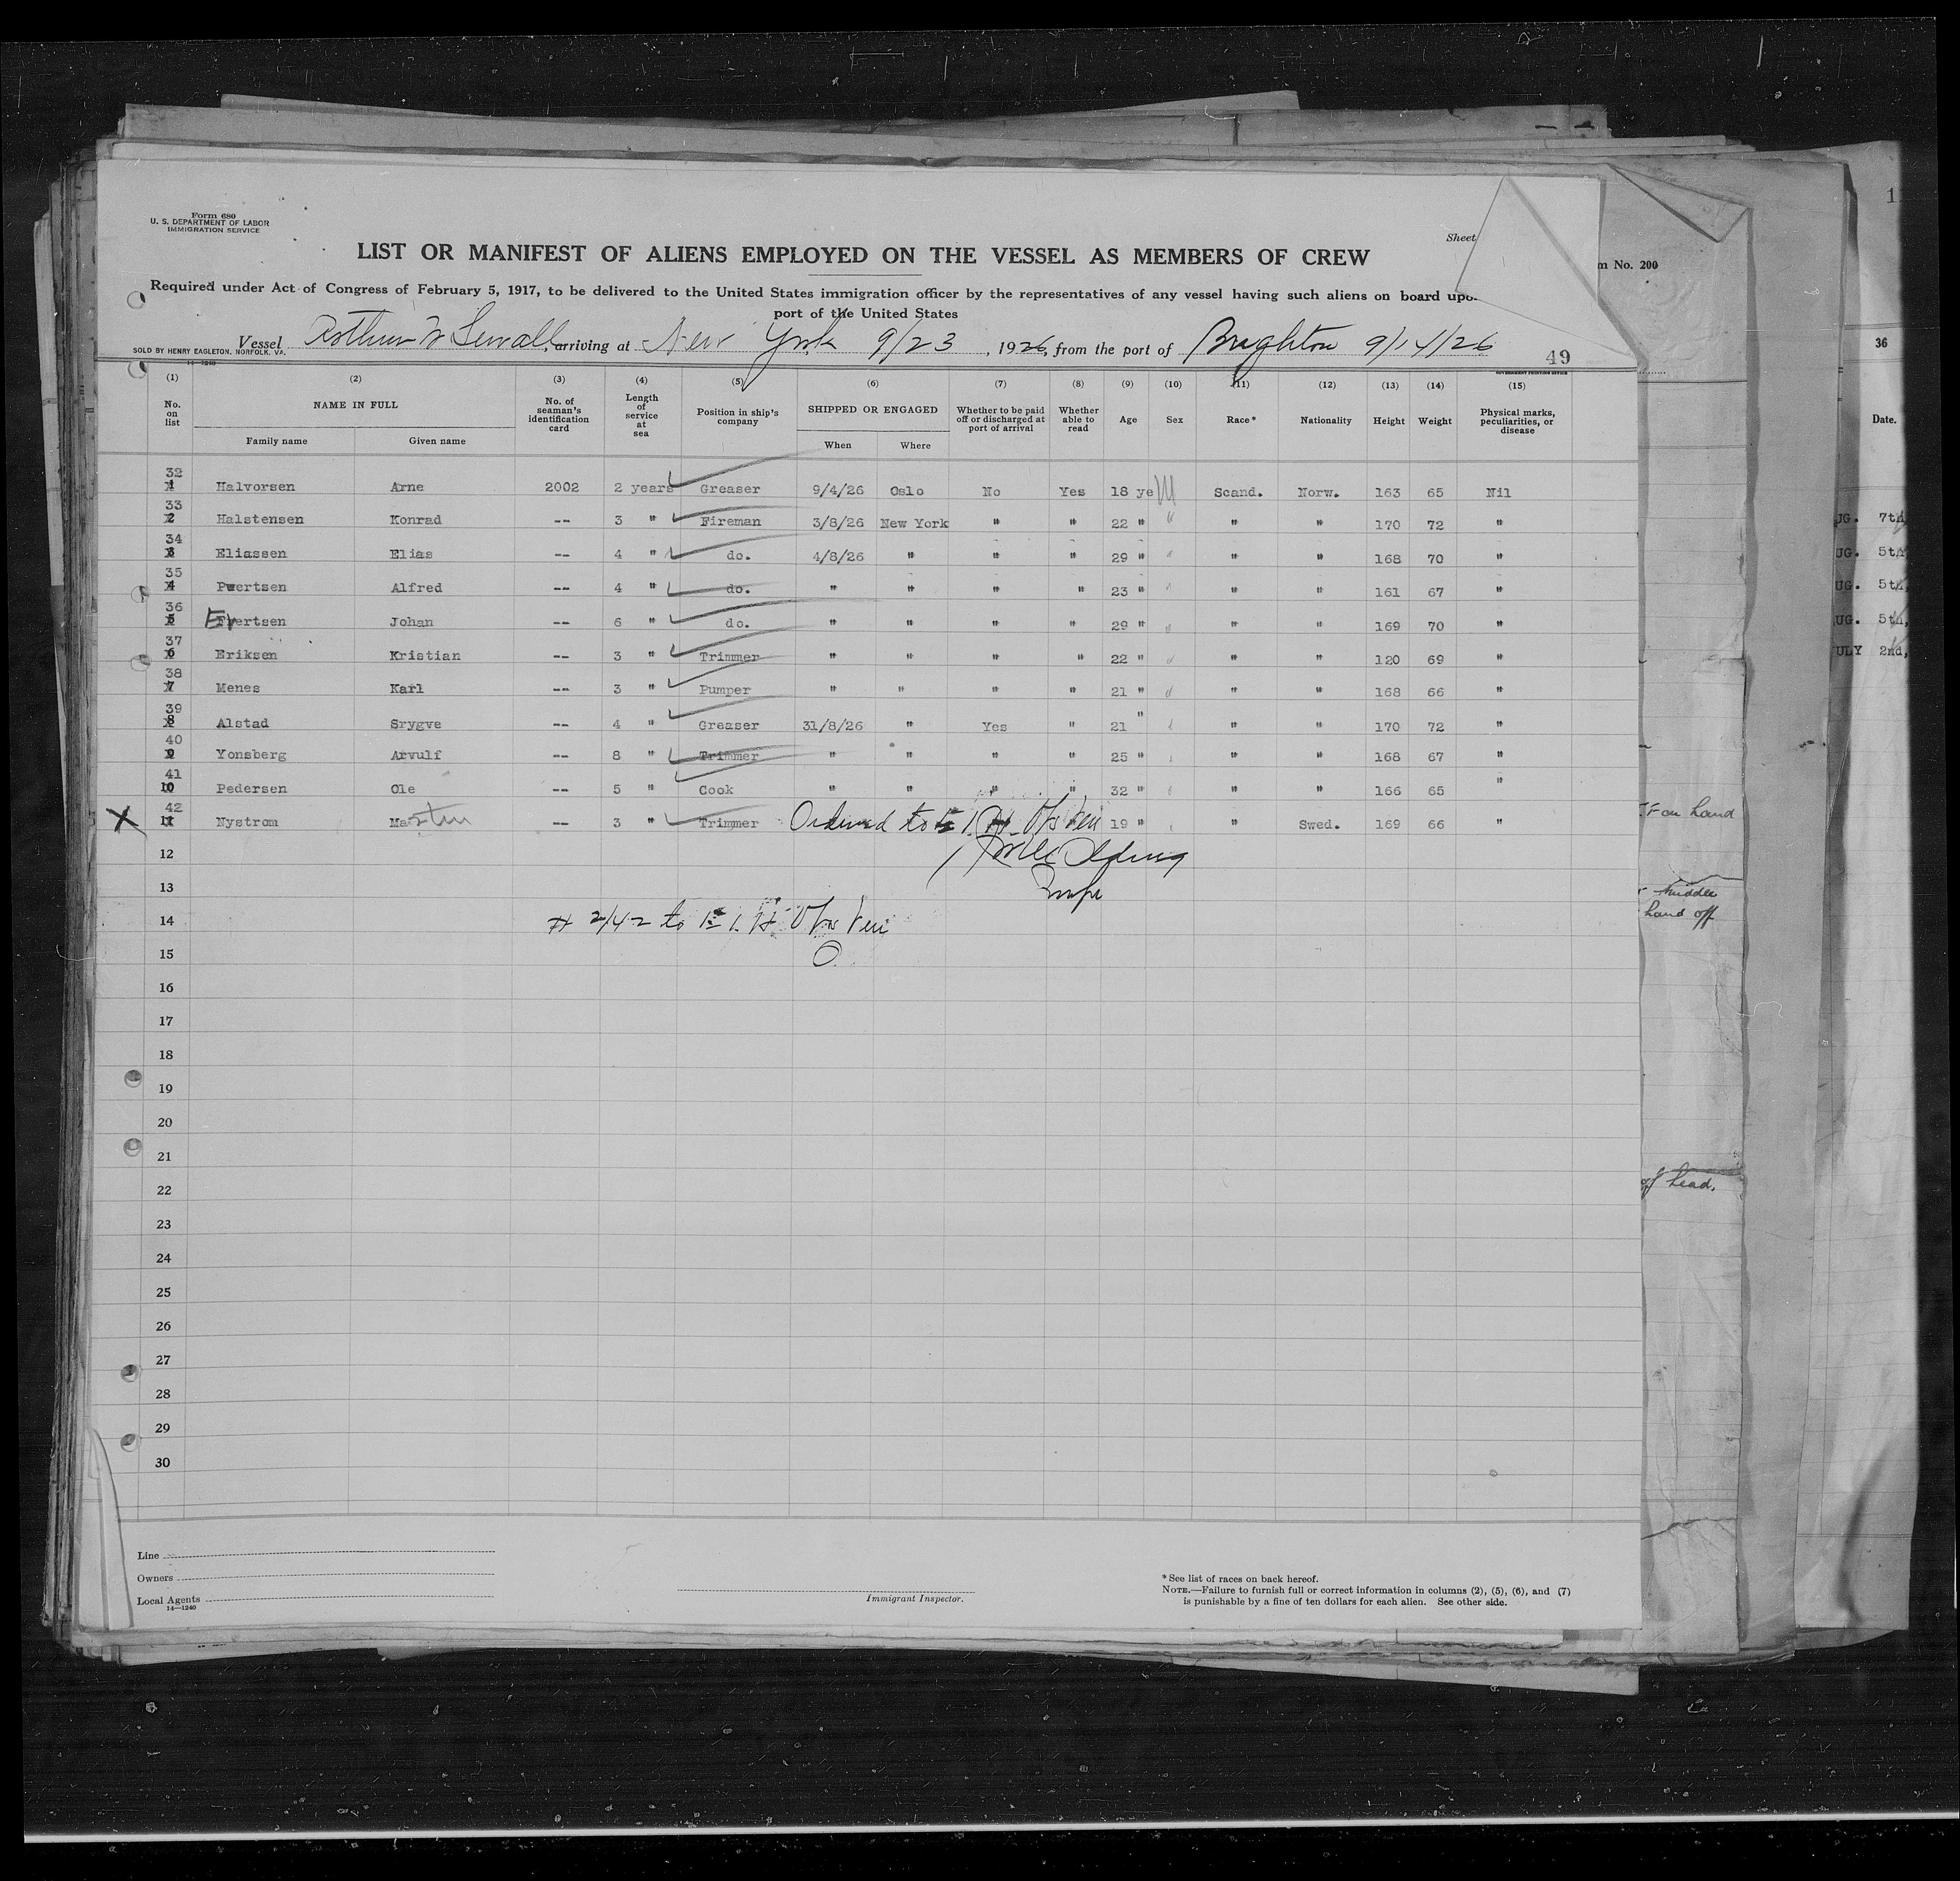 Form 680
U. S. DEPARTMENT OF LABOR
IMMIGRATION SERVICE
Sheet
LIST OR MANIFEST OF ALIENS EMPLOYED ON THE VESSEL AS MEMBERS OF CREW
Required under Act of Congress of February 5, 1917, to be delivered to the United States immigration officer by the representatives of any vessel having such aliens on board upo
port of the United States
Vessel Arthur W Sewall, arriving at New York 9/23, 1926, from the port of Brighton 9/14/26
SOLD BY HENRY EAGLETON, NORFOLK, VA.
14—1240
49
GOVERNMENT PRINTING OFFICE
(1) (2) (3) (4) (5) (6) (7) (8) (9) (10) (11) (12) (13) (14) (15)
No. on list NAME IN FULL No. of seaman's identification card Length of service at sea Position in ship's company SHIPPED OR ENGAGED Whether to be paid off or discharged at port of arrival Whether able to read Age Sex Race* Nationality Height Weight Physical marks, peculiarities, or disease
Family name Given name When Where
32 1 Halvorsen Arne 2002 2 years Greaser 9/4/26 Oslo No Yes 18 ye M Scand. Norw. 163 65 Nil
33 2 Halstensen Konrad -- 3 " Fireman 3/8/26 New York " " 22 " " " " 170 72 "
34 3 Eliassen Elias -- 4 " do. 4/8/26 " " " 29 " " " 168 70 "
35 4 Pwertsen Alfred -- 4 " do. " " " " 23 " " " 161 67 "
36 5 Evertsen Johan -- 6 " do. " " " " 29 " " " 169 70 "
37 6 Eriksen Kristian -- 3 " Trimmer " " " " 22 " " " 120 69 "
38 7 Menes Karl -- 3 " Pumper " " " " 21 " " " 168 66 "
39 8 Alstad Srygve -- 4 " Greaser 31/8/26 " Yes " 21 " " " 170 72 "
40 9 Yonsberg Arvulf -- 8 " Trimmer " " " " 25 " " " 168 67 "
41 10 Pedersen Ole -- 5 " Cook " " " " 32 " " " 166 65 "
X 42 11 Nystrom Mastin -- 3 " Trimmer Ordered to 19 " " Swed. 169 66 "
12
13
14
15
16
17
18
19
20
21
22
23
24
25
26
27
28
29
30
Line
Owners
Local Agents
14—1240
Immigrant Inspector.
* See list of races on back hereof.
NOTE.—Failure to furnish full or correct information in columns (2), (5), (6), and (7)
is punishable by a fine of ten dollars for each alien. See other side.
m No. 200
on hand
middle
hand off
of head.
1
36
Date.
UG. 7th
UG. 5th
UG. 5th,
UG. 5th,
ULY 2nd,